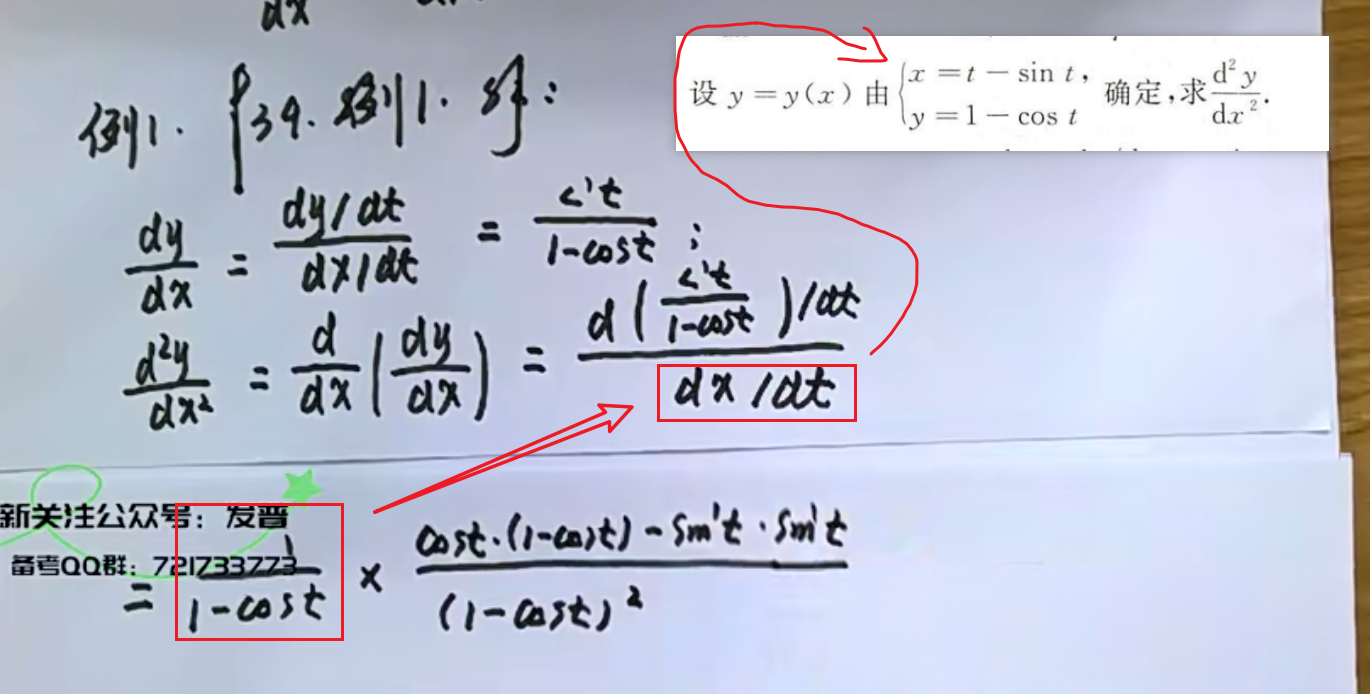 dx
例1. {34. 例1. 8}:
设 y = y(x) 由 { x = t − sin t , y = 1 − cos t 确定,求 d²y/dx².
dy/dx = (dy/dt)/(dx/dt) = s't/(1-cost) ;
d²y/dx² = d/dx (dy/dx) = d(s't/(1-cost))/dt / (dx/dt)
新关注公众号:发晋
备考QQ群:721733773
= 1/(1-cost) × (cost·(1-cost) - sin't · sin't)/(1-cost)²